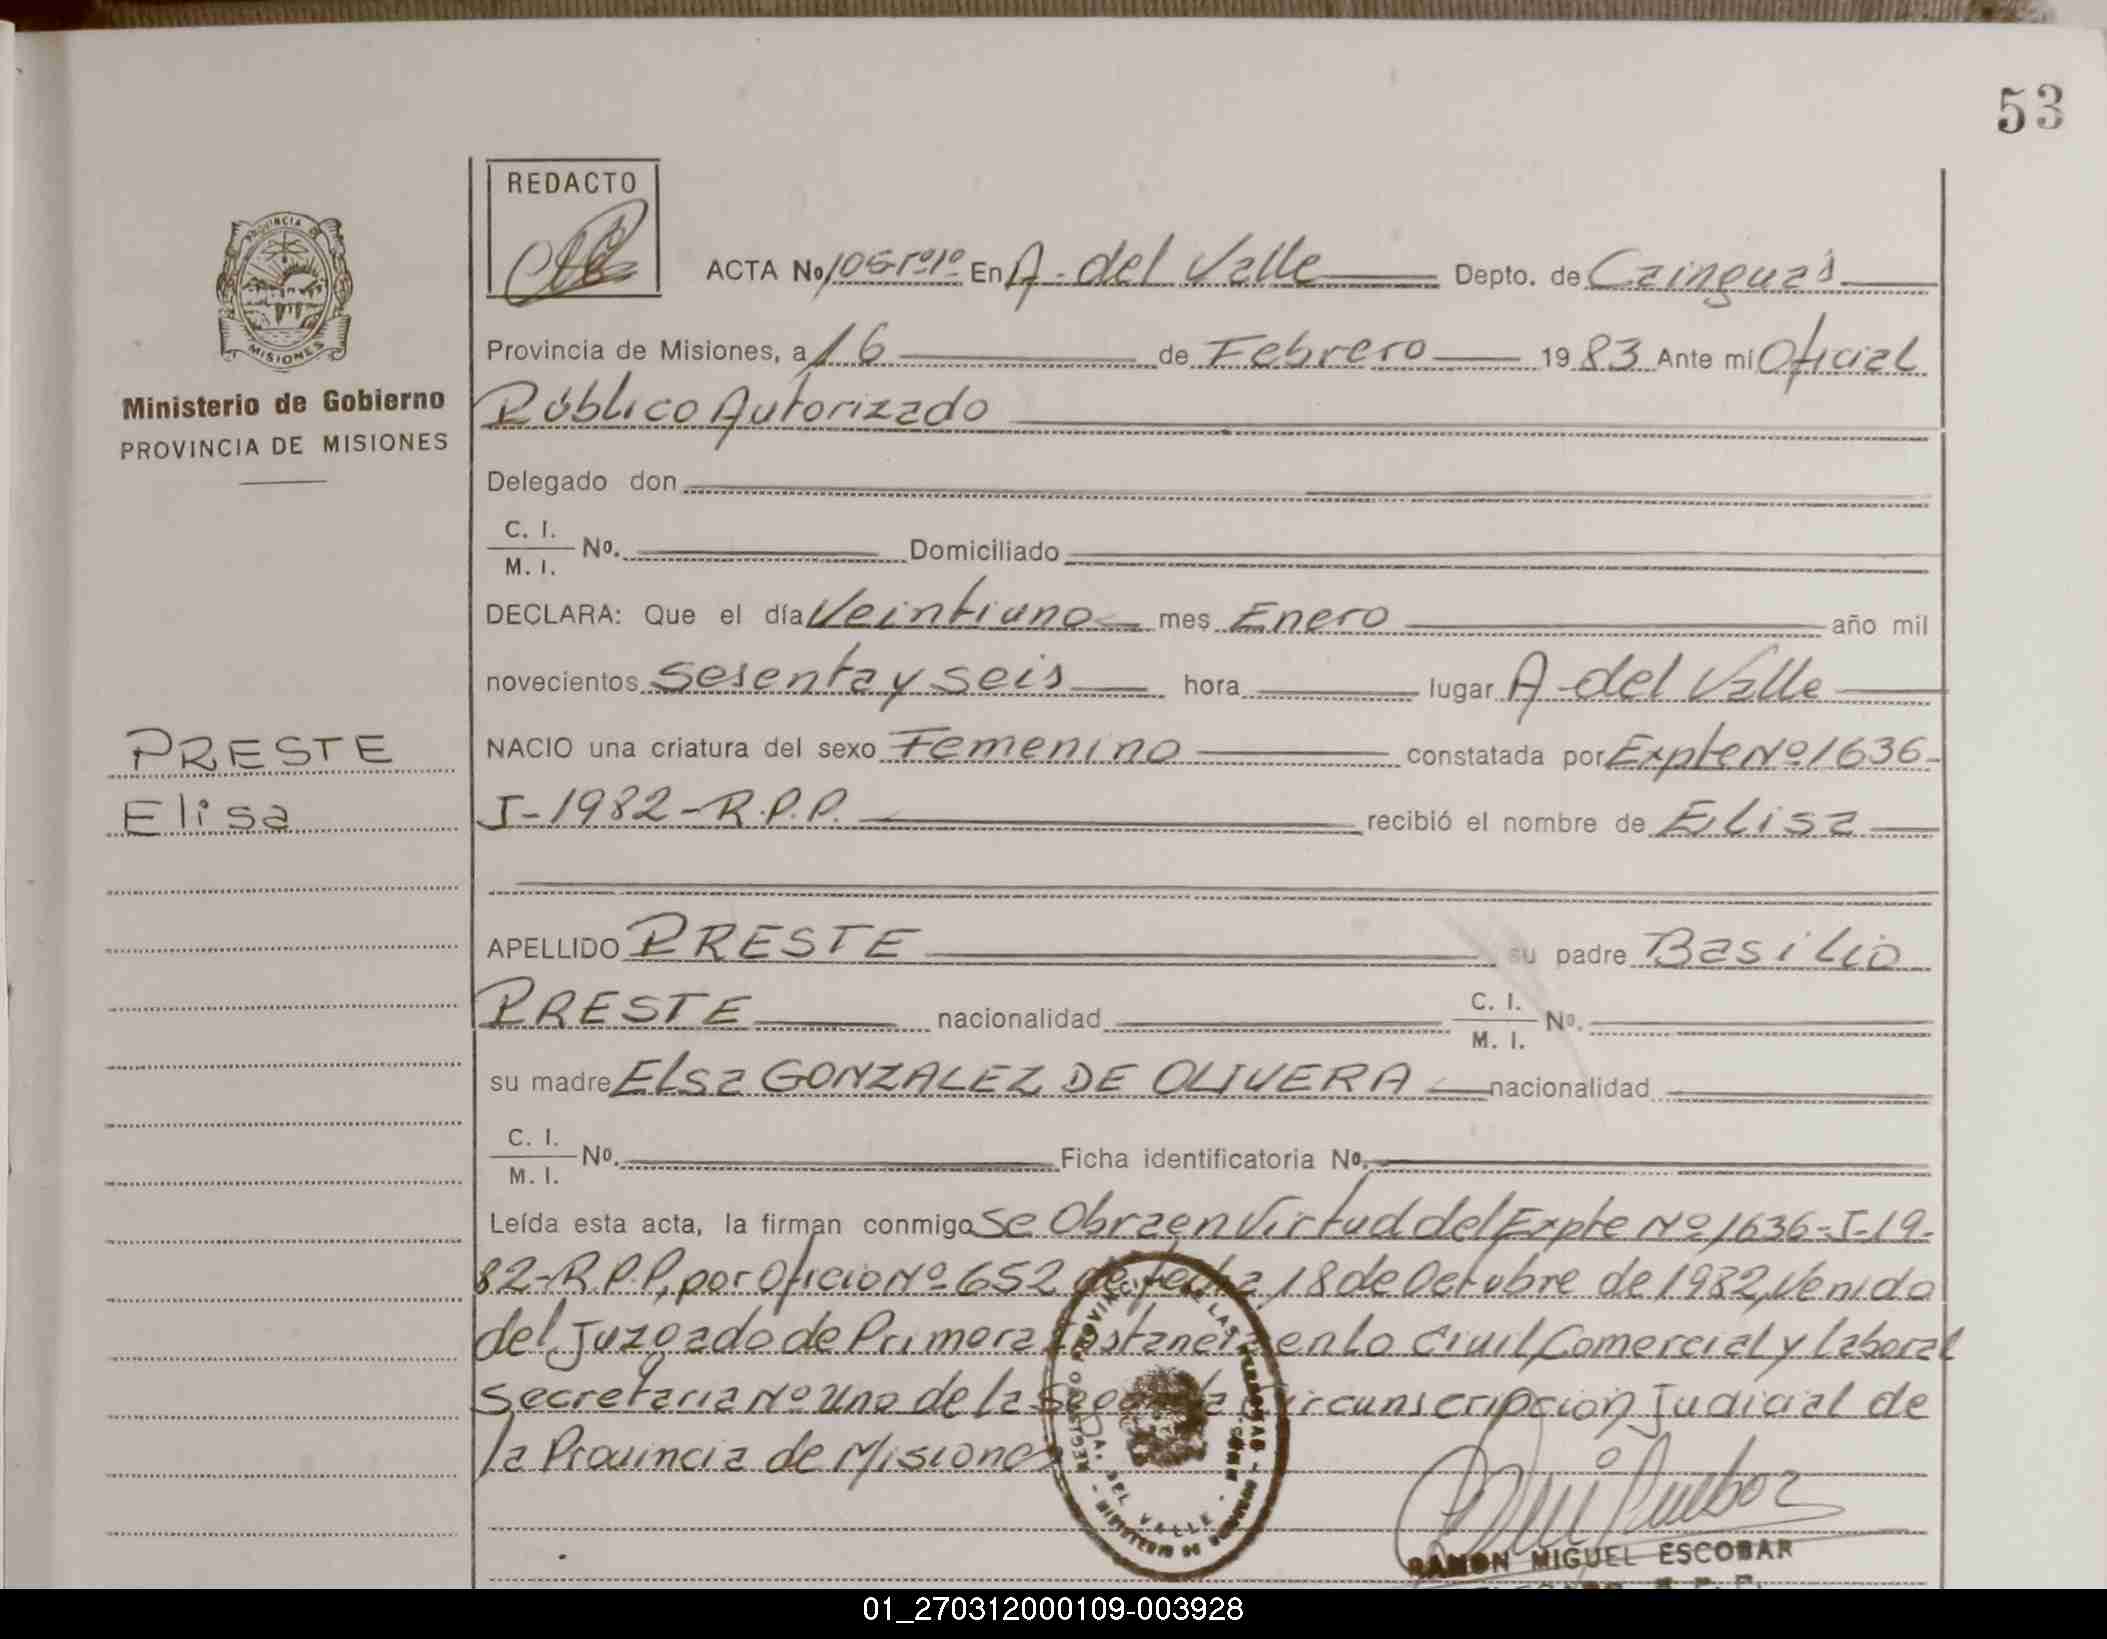 53
REDACTO
PROVINCIA DE
MISIONES
Ministerio de Gobierno
PROVINCIA DE MISIONES
ACTA No En A. del Valle Depto. de Cainguás
Provincia de Misiones, a 16 de Febrero 1983 Ante mí Oficial
Público Autorizado
Delegado don
C. I.
M. I. No. Domiciliado
DECLARA: Que el día Veintiuno mes Enero año mil
novecientos sesenta y seis hora lugar A del Valle
NACIO una criatura del sexo Femenino constatada por Expte Nº 1636-
I-1982-R.P.P. recibió el nombre de Elisa
PRESTE
Elisa
APELLIDO PRESTE su padre Basilio
PRESTE nacionalidad C. I.
M. I. No.
su madre Elsa GONZALEZ DE OLIVERA nacionalidad
C. I.
M. I. No. Ficha identificatoria No.
Leída esta acta, la firman conmigo Se Obra en Virtud del Expte Nº 1636-I-19-
82-R.P.P, por Oficio Nº 652 de fecha 18 de Octubre de 1982, Venido
del Juzgado de Primera Instancia en lo Civil, Comercial y Laboral
Secretaria Nº uno de la Segunda Circunscripción Judicial de
la Provincia de Misiones
DEL VALLE
RAMON MIGUEL ESCOBAR
01_270312000109-003928